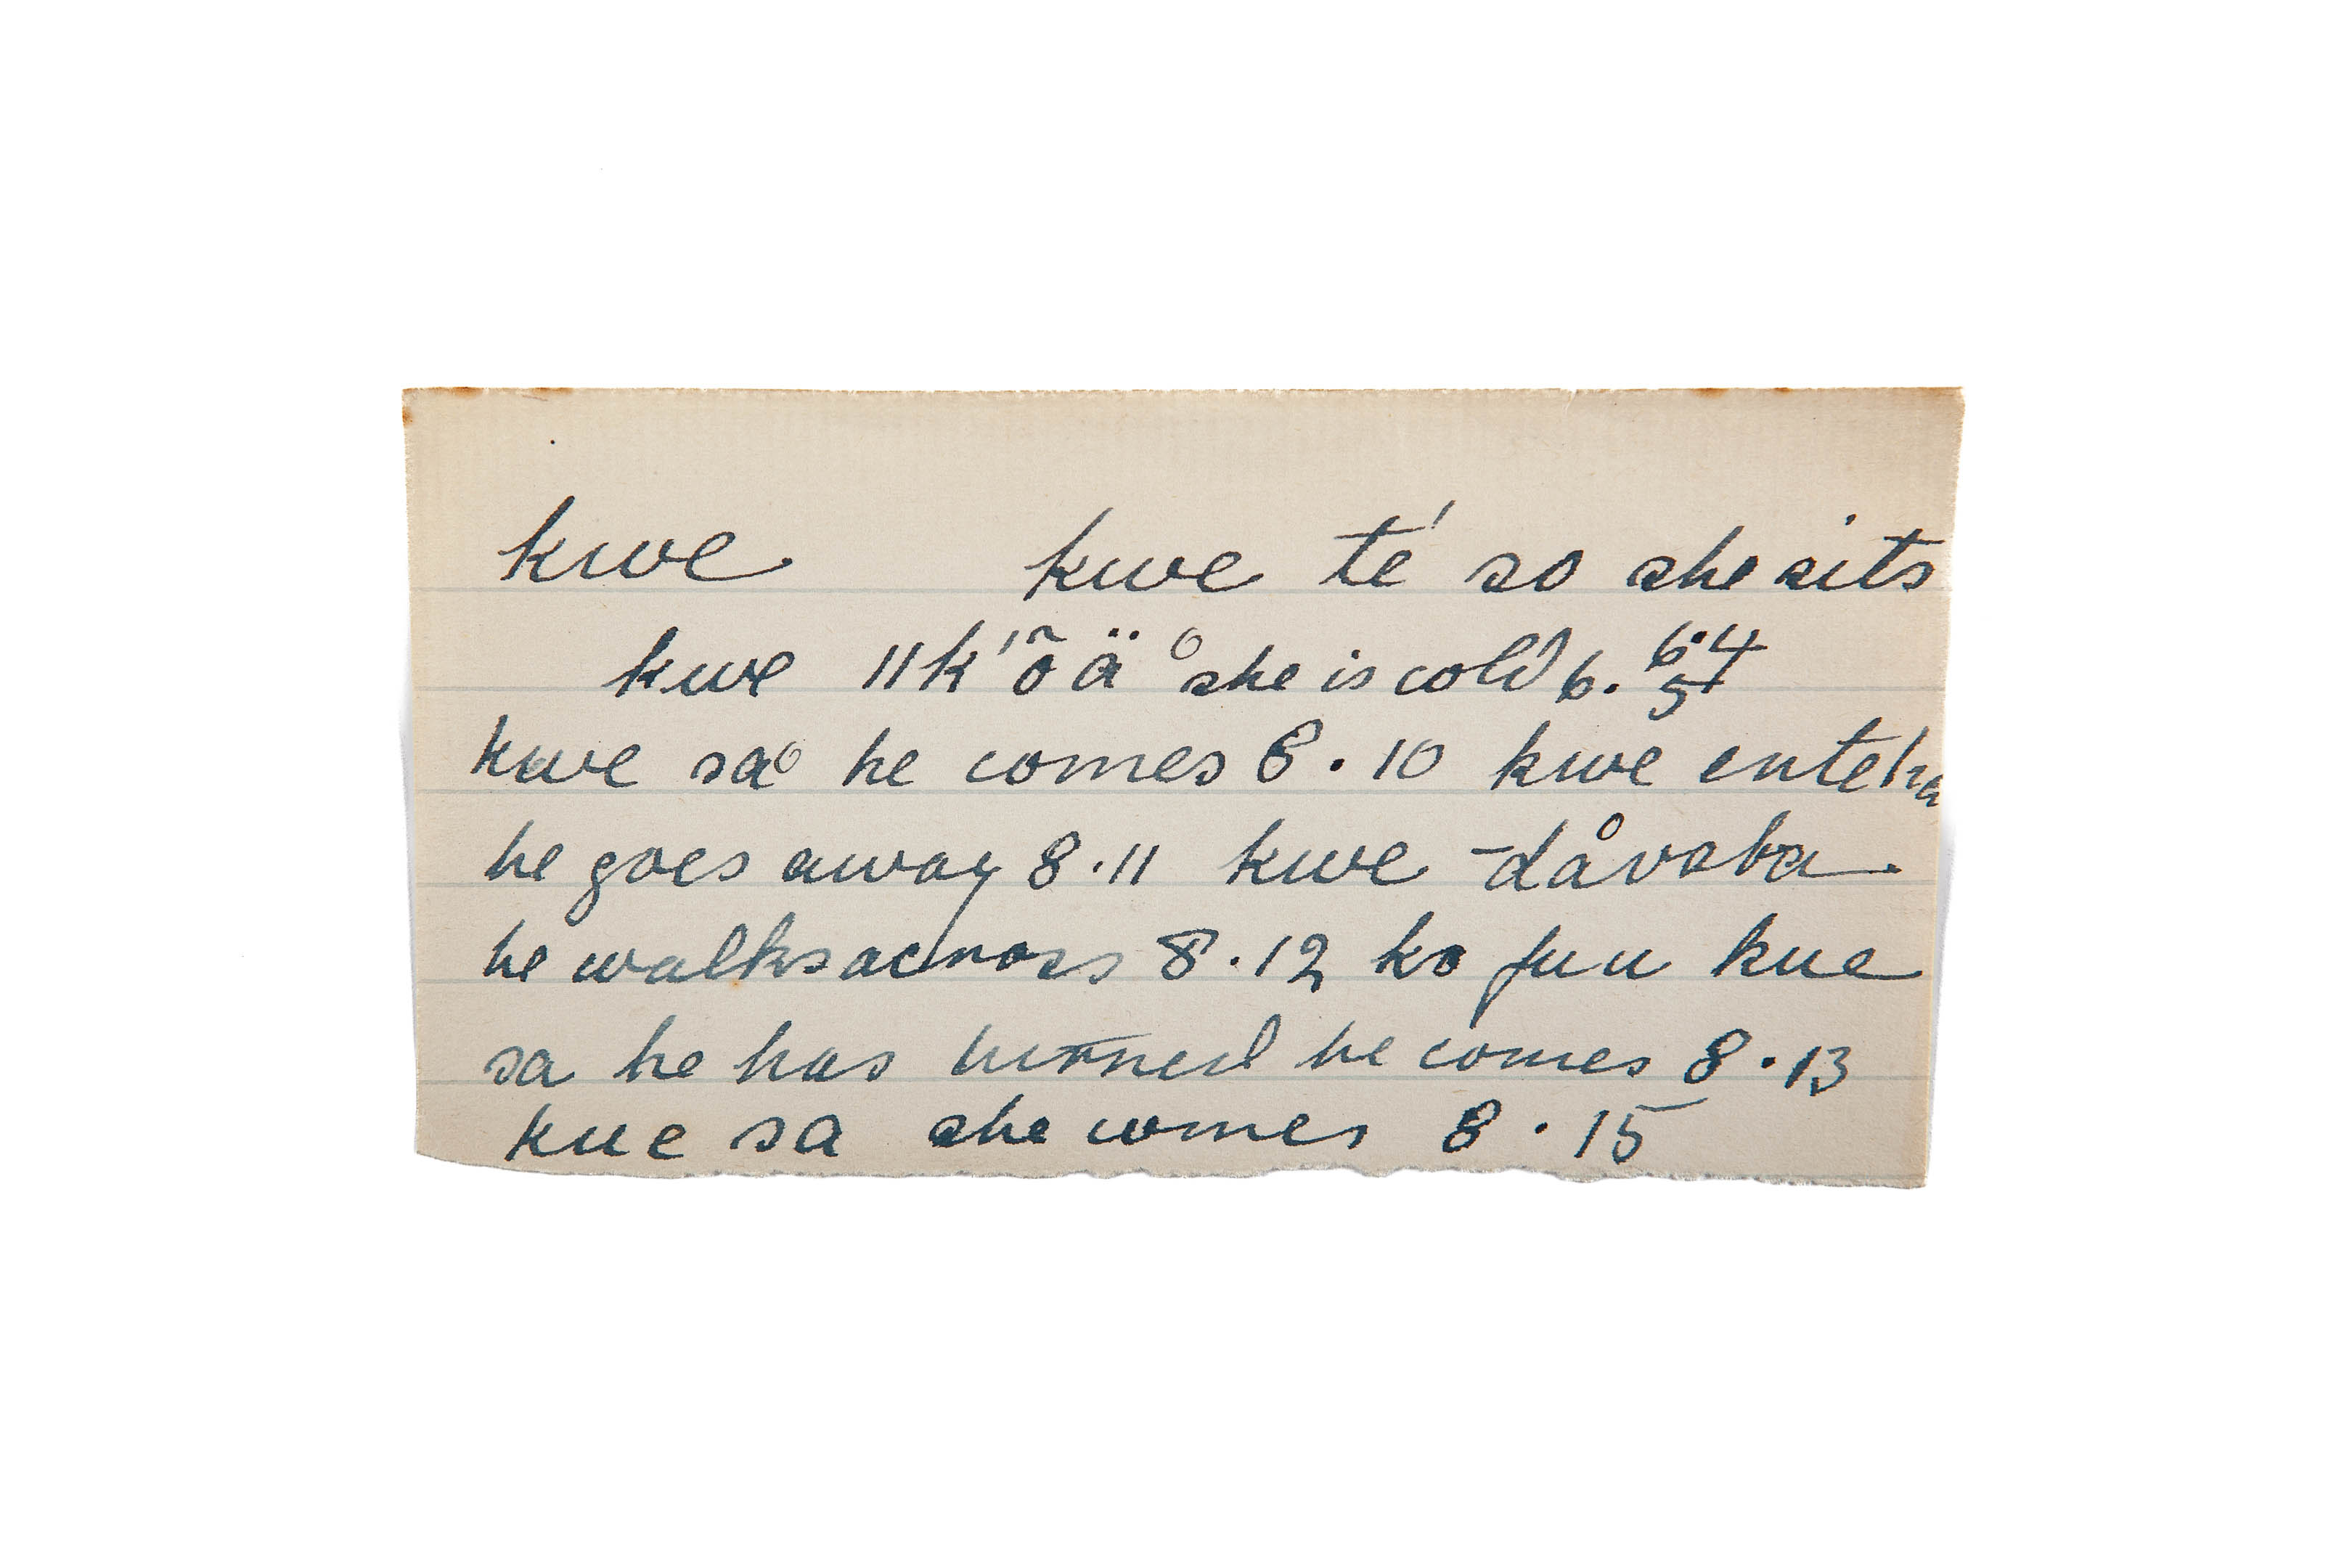 kwe kwe te' so she sits
kwe ||k'õä° she is cold 6. 6.4 5
kwe sa° he comes 8.10 kwe enteha
he goes away 8.11 kwe -dåvaba
he walks across 8.12 ko fuu kue
sa he has turned he comes 8.13
kue sa she comes 8.15